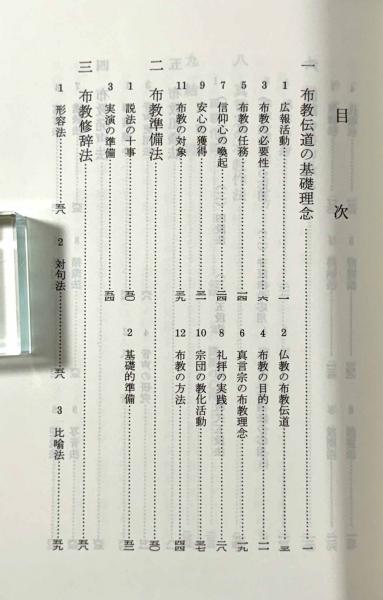 目次
一 布教伝道の基礎理念……一
1 広報活動……一 2 仏教の布教伝道……
3 布教の必要性……六 4 布教の目的……一一
5 布教の任務……一四 6 真言宗の布教理念……一九
7 信仰心の喚起……二四 8 礼拝の実践……二八
9 安心の獲得……三一 10 宗団の教化活動……三七
11 布教の対象……三九 12 布教の方法……四四
二 布教準備法……五〇
1 説法の十事……五〇 2 基礎的準備……
3 実演の準備……五四
三 布教修辞法……五八
1 形容法……五八 2 対句法……五八 3 比喩法……五九